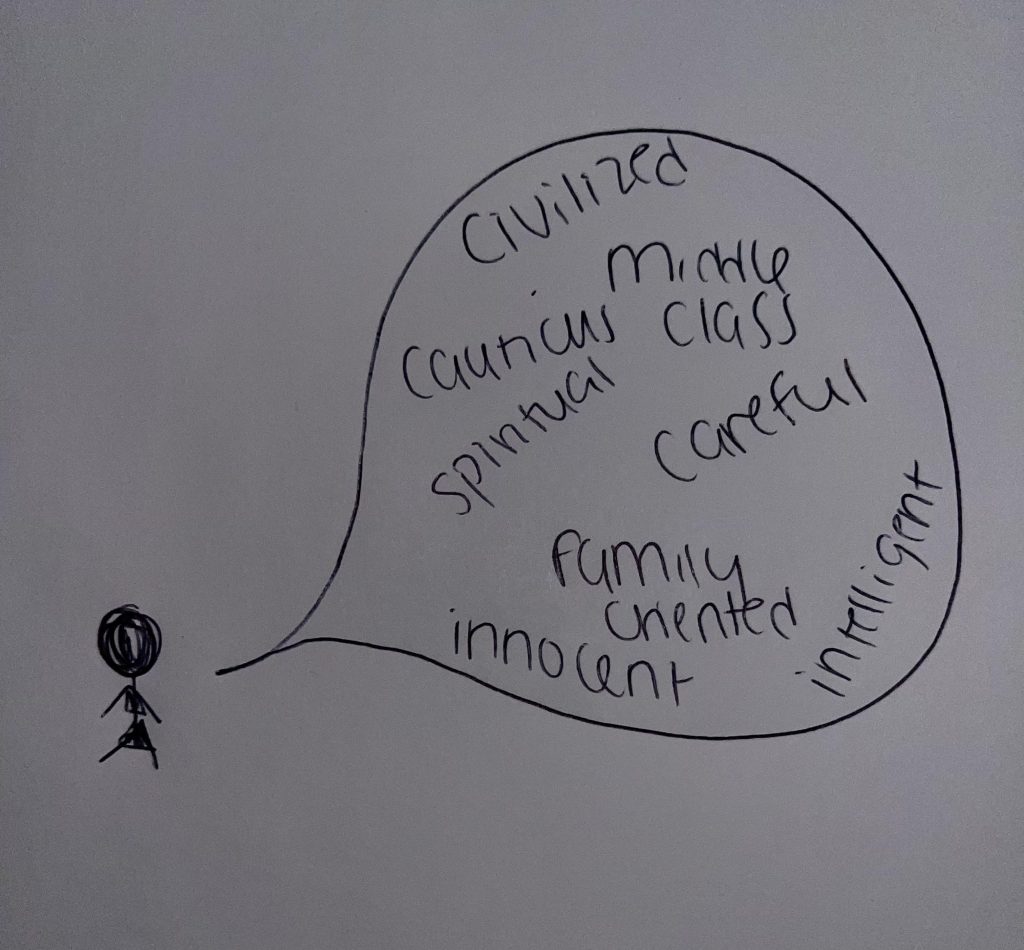 civilized
middle
class
cautious
spiritual
careful
family
oriented
innocent
intelligent